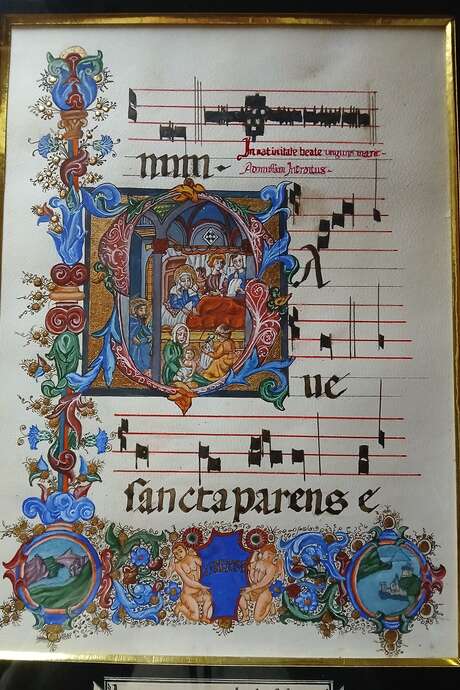 num·
In nativitate beate virginis marie
Ad missam Introitus
A
ue
sancta parens e